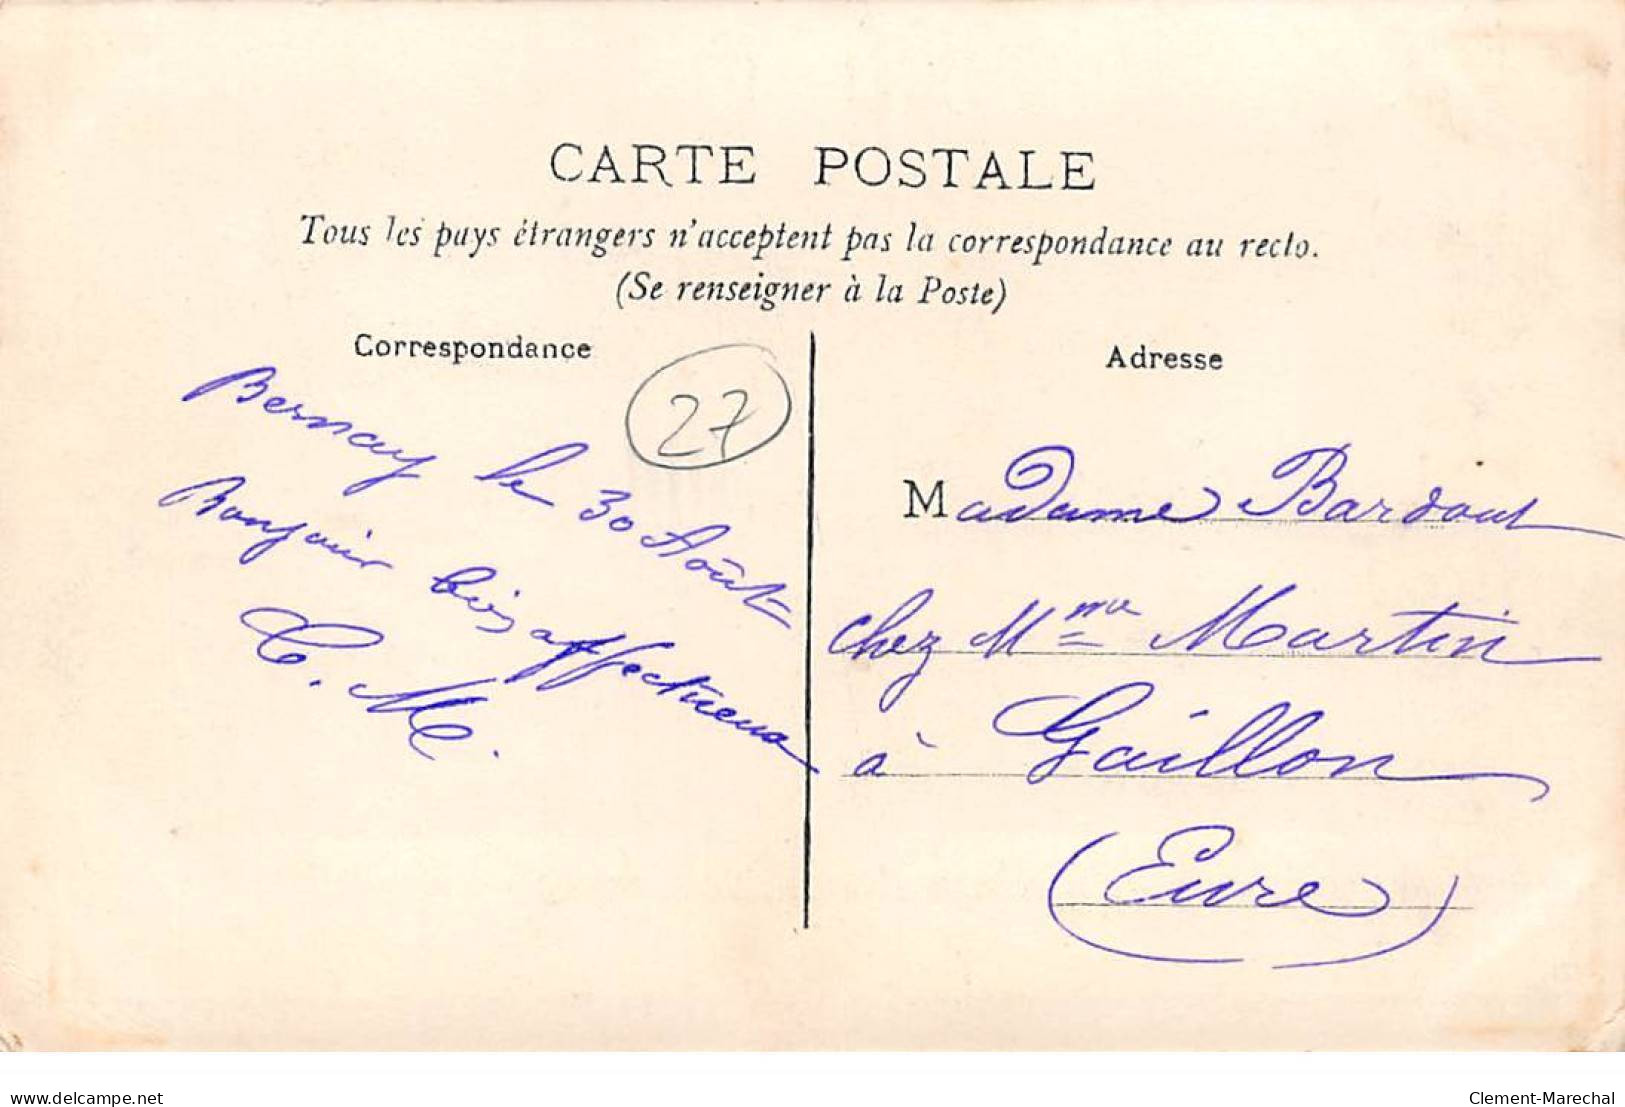 CARTE POSTALE
Tous les pays étrangers n'acceptent pas la correspondance au recto.
(Se renseigner à la Poste)
Correspondance
27
Bernay le 30 Août
Bonjour bien affectueux
C. M.
Adresse
Madame Bardout
chez Mme Martin
à Gaillon
(Eure)
delcampe.net
Clement-Marechal